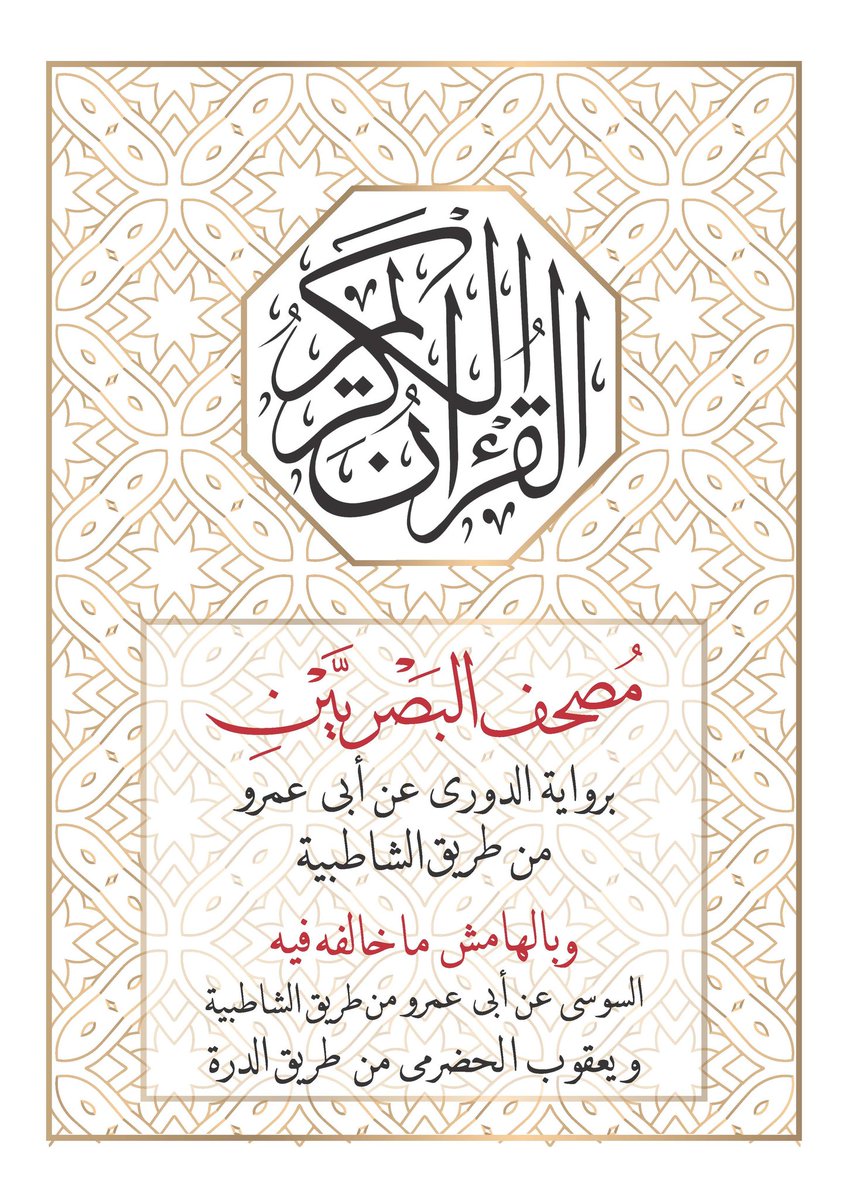 القرءان الكريم
مُصحف البَصْريَّيْنِ
برواية الدورى عن أبى عمرو
من طريق الشاطبية
وبالهامش ما خالفه فيه
السوسى عن أبى عمرو من طريق الشاطبية
ويعقوب الحضرمى من طريق الدرة